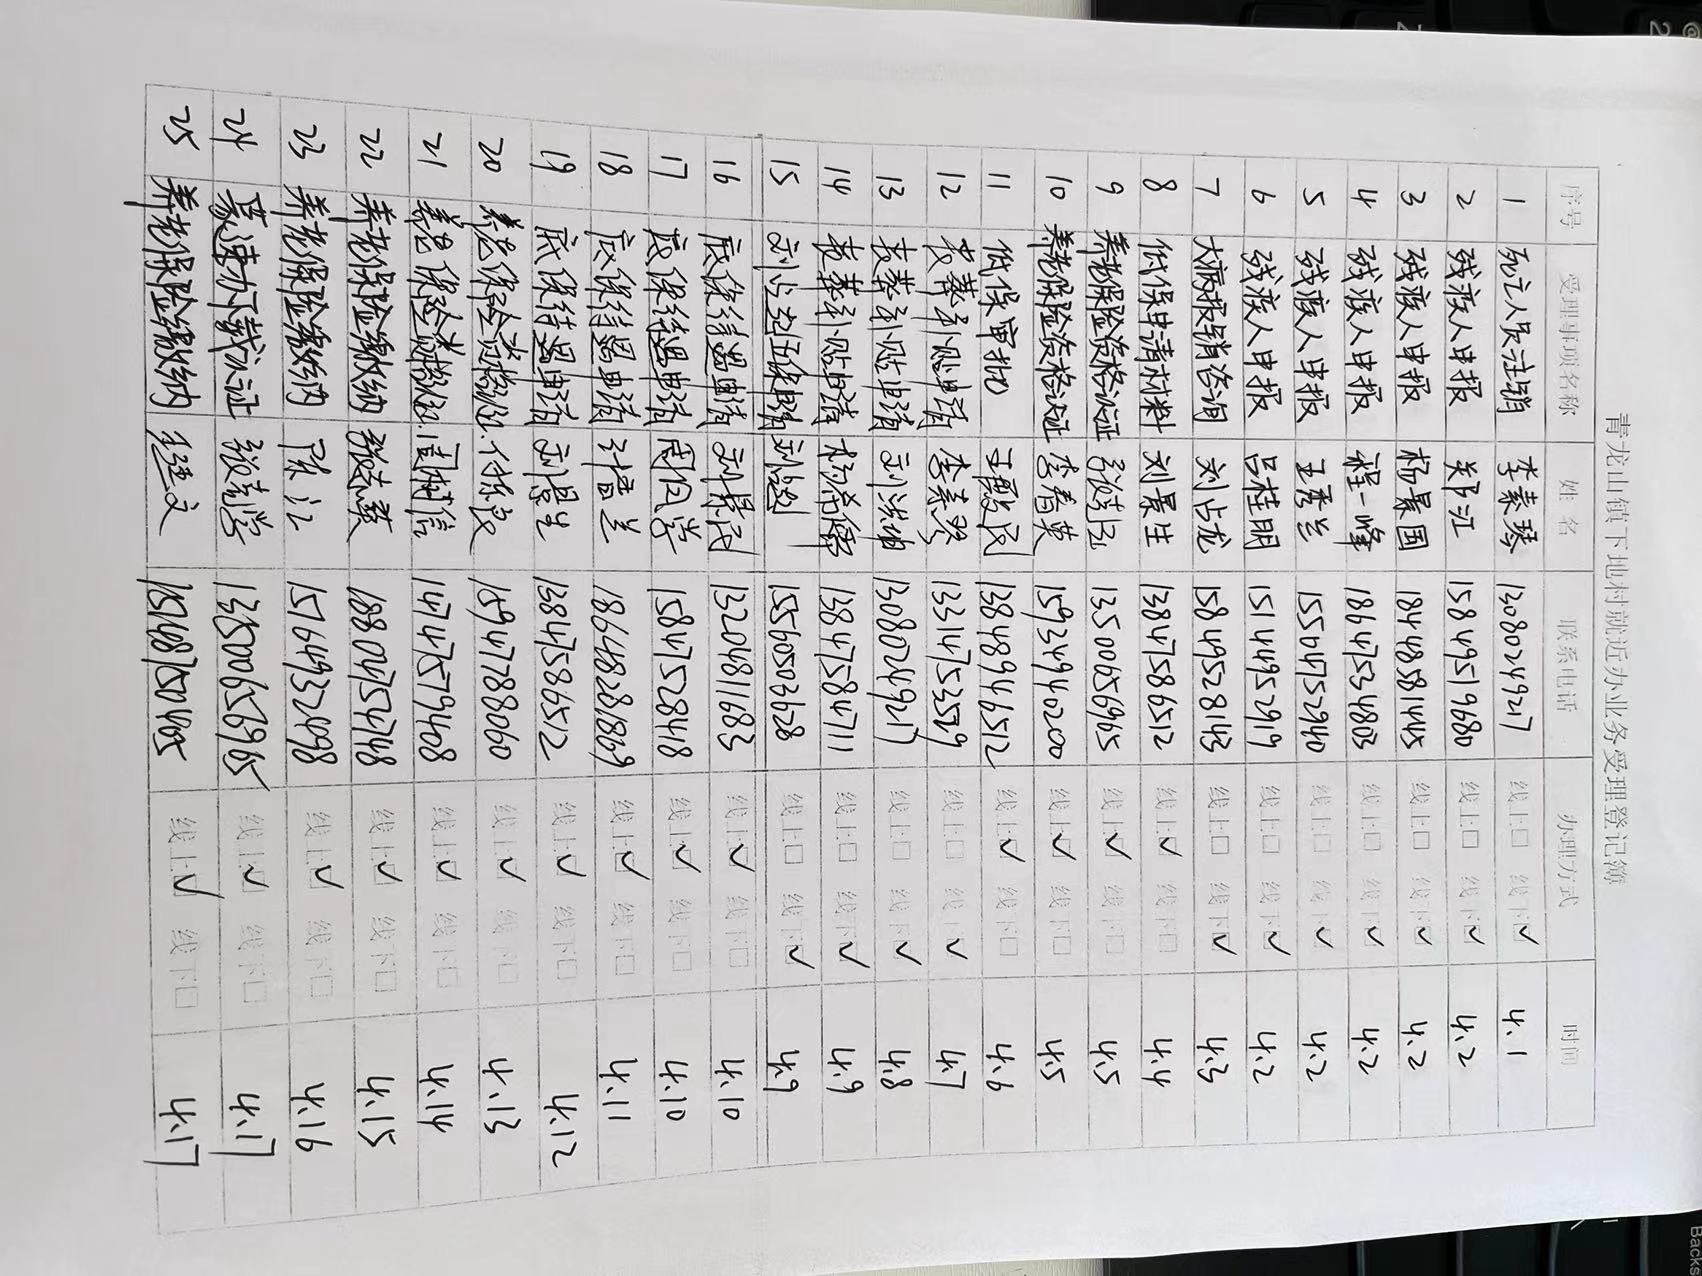 青龙山镇下地村就近办业务受理登记簿
序号 受理事项名称 姓名 联系电话 办理方式 时间
1 死亡人员注销 李素琴 13080249217 线上□ 线下☑ 4.1
2 残疾人申报 郑江 15849519680 线上□ 线下☑ 4.2
3 残疾人申报 杨景国 18448581445 线上□ 线下☑ 4.2
4 残疾人申报 程一峰 18647534803 线上□ 线下☑ 4.2
5 残疾人申报 王秀兰 15504752940 线上□ 线下☑ 4.2
6 残疾人申报 吕桂明 15144952919 线上□ 线下☑ 4.2
7 大病报销咨询 刘占龙 15849528143 线上□ 线下☑ 4.3
8 低保申请材料 刘景生 13847586512 线上☑ 线下□ 4.4
9 养老保险资格认证 13500656965 线上☑ 线下□ 4.5
10 养老保险资格认证 李春英 15924940200 线上☑ 线下□ 4.5
11 低保审批 13848946512 线上☑ 线下□ 4.6
12 丧葬补贴申请 13314753529 线上□ 线下☑ 4.7
13 丧葬补贴申请 13080249217 线上□ 线下☑ 4.8
14 丧葬补贴申请 13847584711 线上□ 线下☑ 4.9
15 15560503628 线上□ 线下☑ 4.9
16 底保待遇申请 13204811683 线上☑ 线下□ 4.10
17 底保待遇申请 15847528448 线上☑ 线下□ 4.10
18 底保待遇申请 18648281869 线上☑ 线下□ 4.11
19 底保待遇申请 13847586512 线上☑ 线下□ 4.12
20 养老保险 15947788060 线上☑ 线下□ 4.13
21 养老保险 周树信 14747579468 线上☑ 线下□ 4.14
22 养老保险缴纳 18804753748 线上☑ 线下□ 4.15
23 养老保险缴纳 15764932098 线上☑ 线下□ 4.16
24 蒙速办下载认证 13500656965 线上☑ 线下□ 4.17
25 养老保险缴纳 15148750405 线上☑ 线下□ 4.17